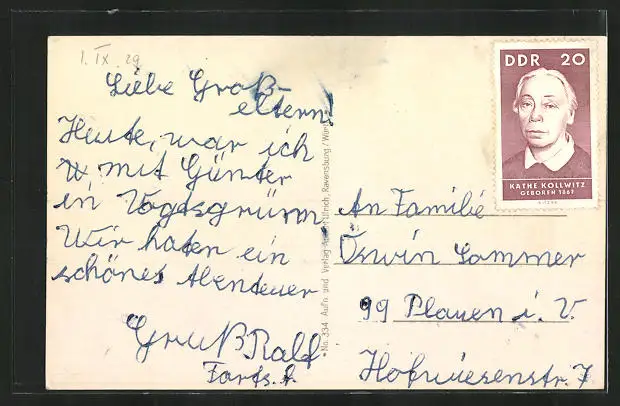 1. IX. 29
Liebe Groß-
eltern!
Heute, war ich
w mit Günter
in Vogtsgrün!
Wir haten ein
schönes Abendeuer
Gruß Ralf
Forts. f.
No. 334 Aufn. und Verlag Ulrich, Ravensburg / Würt
DDR 20
KÄTHE KOLLWITZ
GEBOREN 1867
An Familie
Oswin Sommer
99 Plauen i. V.
Hofwiesenstr. 7